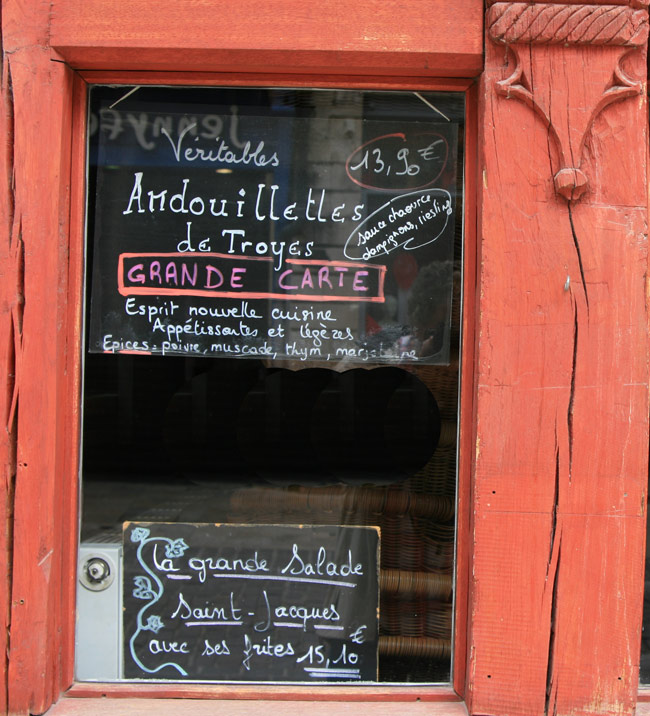 Véritables
13,90€
Andouillettes
de Troyes
sauce chaource
champignons, riesling
GRANDE CARTE
Esprit nouvelle cuisine
Appétissantes et légères
Epices: poivre, muscade, thym, marjolaine
La grande Salade
Saint-Jacques
avec ses frites 15,10€